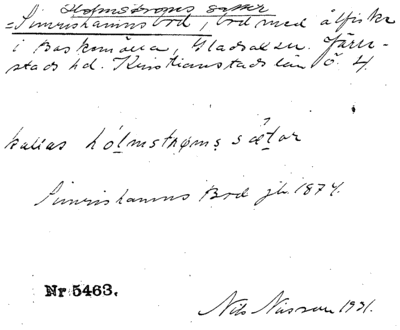 Holmströms sätter
= Simrishamns bod, bod med ålfiske
i Baskemölla, Gladsax sn. Järre-
stads hd. Kristianstads län ö. 4
kallas hólmstrøms sætar
Simrishamns Bod jb. 1874.
Nr 5463.
Nils Nilsson 1931.